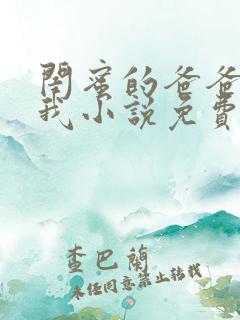 閨蜜的爸爸
我小說免費
查巴蘭
未経同意禁止转載